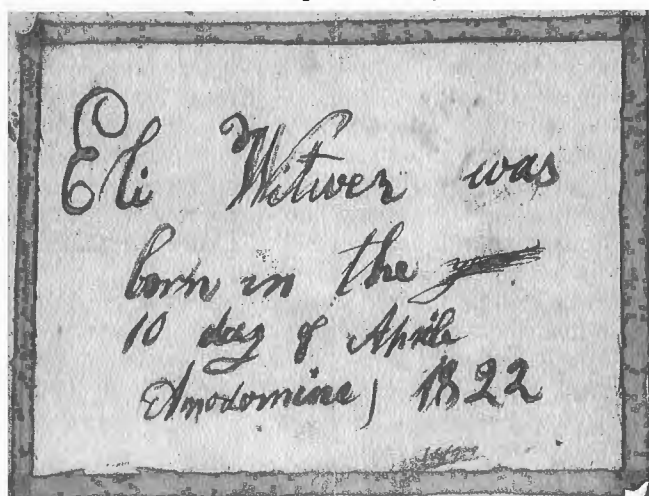 Eli Witwer was
born in the
10 day of Aprile
Anodomine, 1822